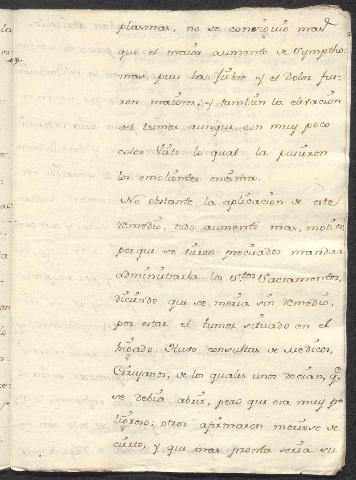 plasmas, no se consiguió mas
que el maior aumento de Symptho-
mas, pues la fiebre y el dolor fue-
ron maiores, y tambien la elevacion
del tumor aunque con muy poco
color. Visto lo qual la pusieron
los emolientes encima.
No obstante la aplicacion de este
remedio, todo aumentó mas, motivo
por que se vieron precisados mandar
administrarla los Stos Sacramentos,
diciendo que se moria sin remedio,
por estar el tumor situado en el
higado. Huvo consultas de Medicos,
Cirujanos, de los quales unos decian, q.
se debia abrir, pero que era muy pe-
ligroso, otros afirmaron morirse de
cierto, y que mas pronta seria su